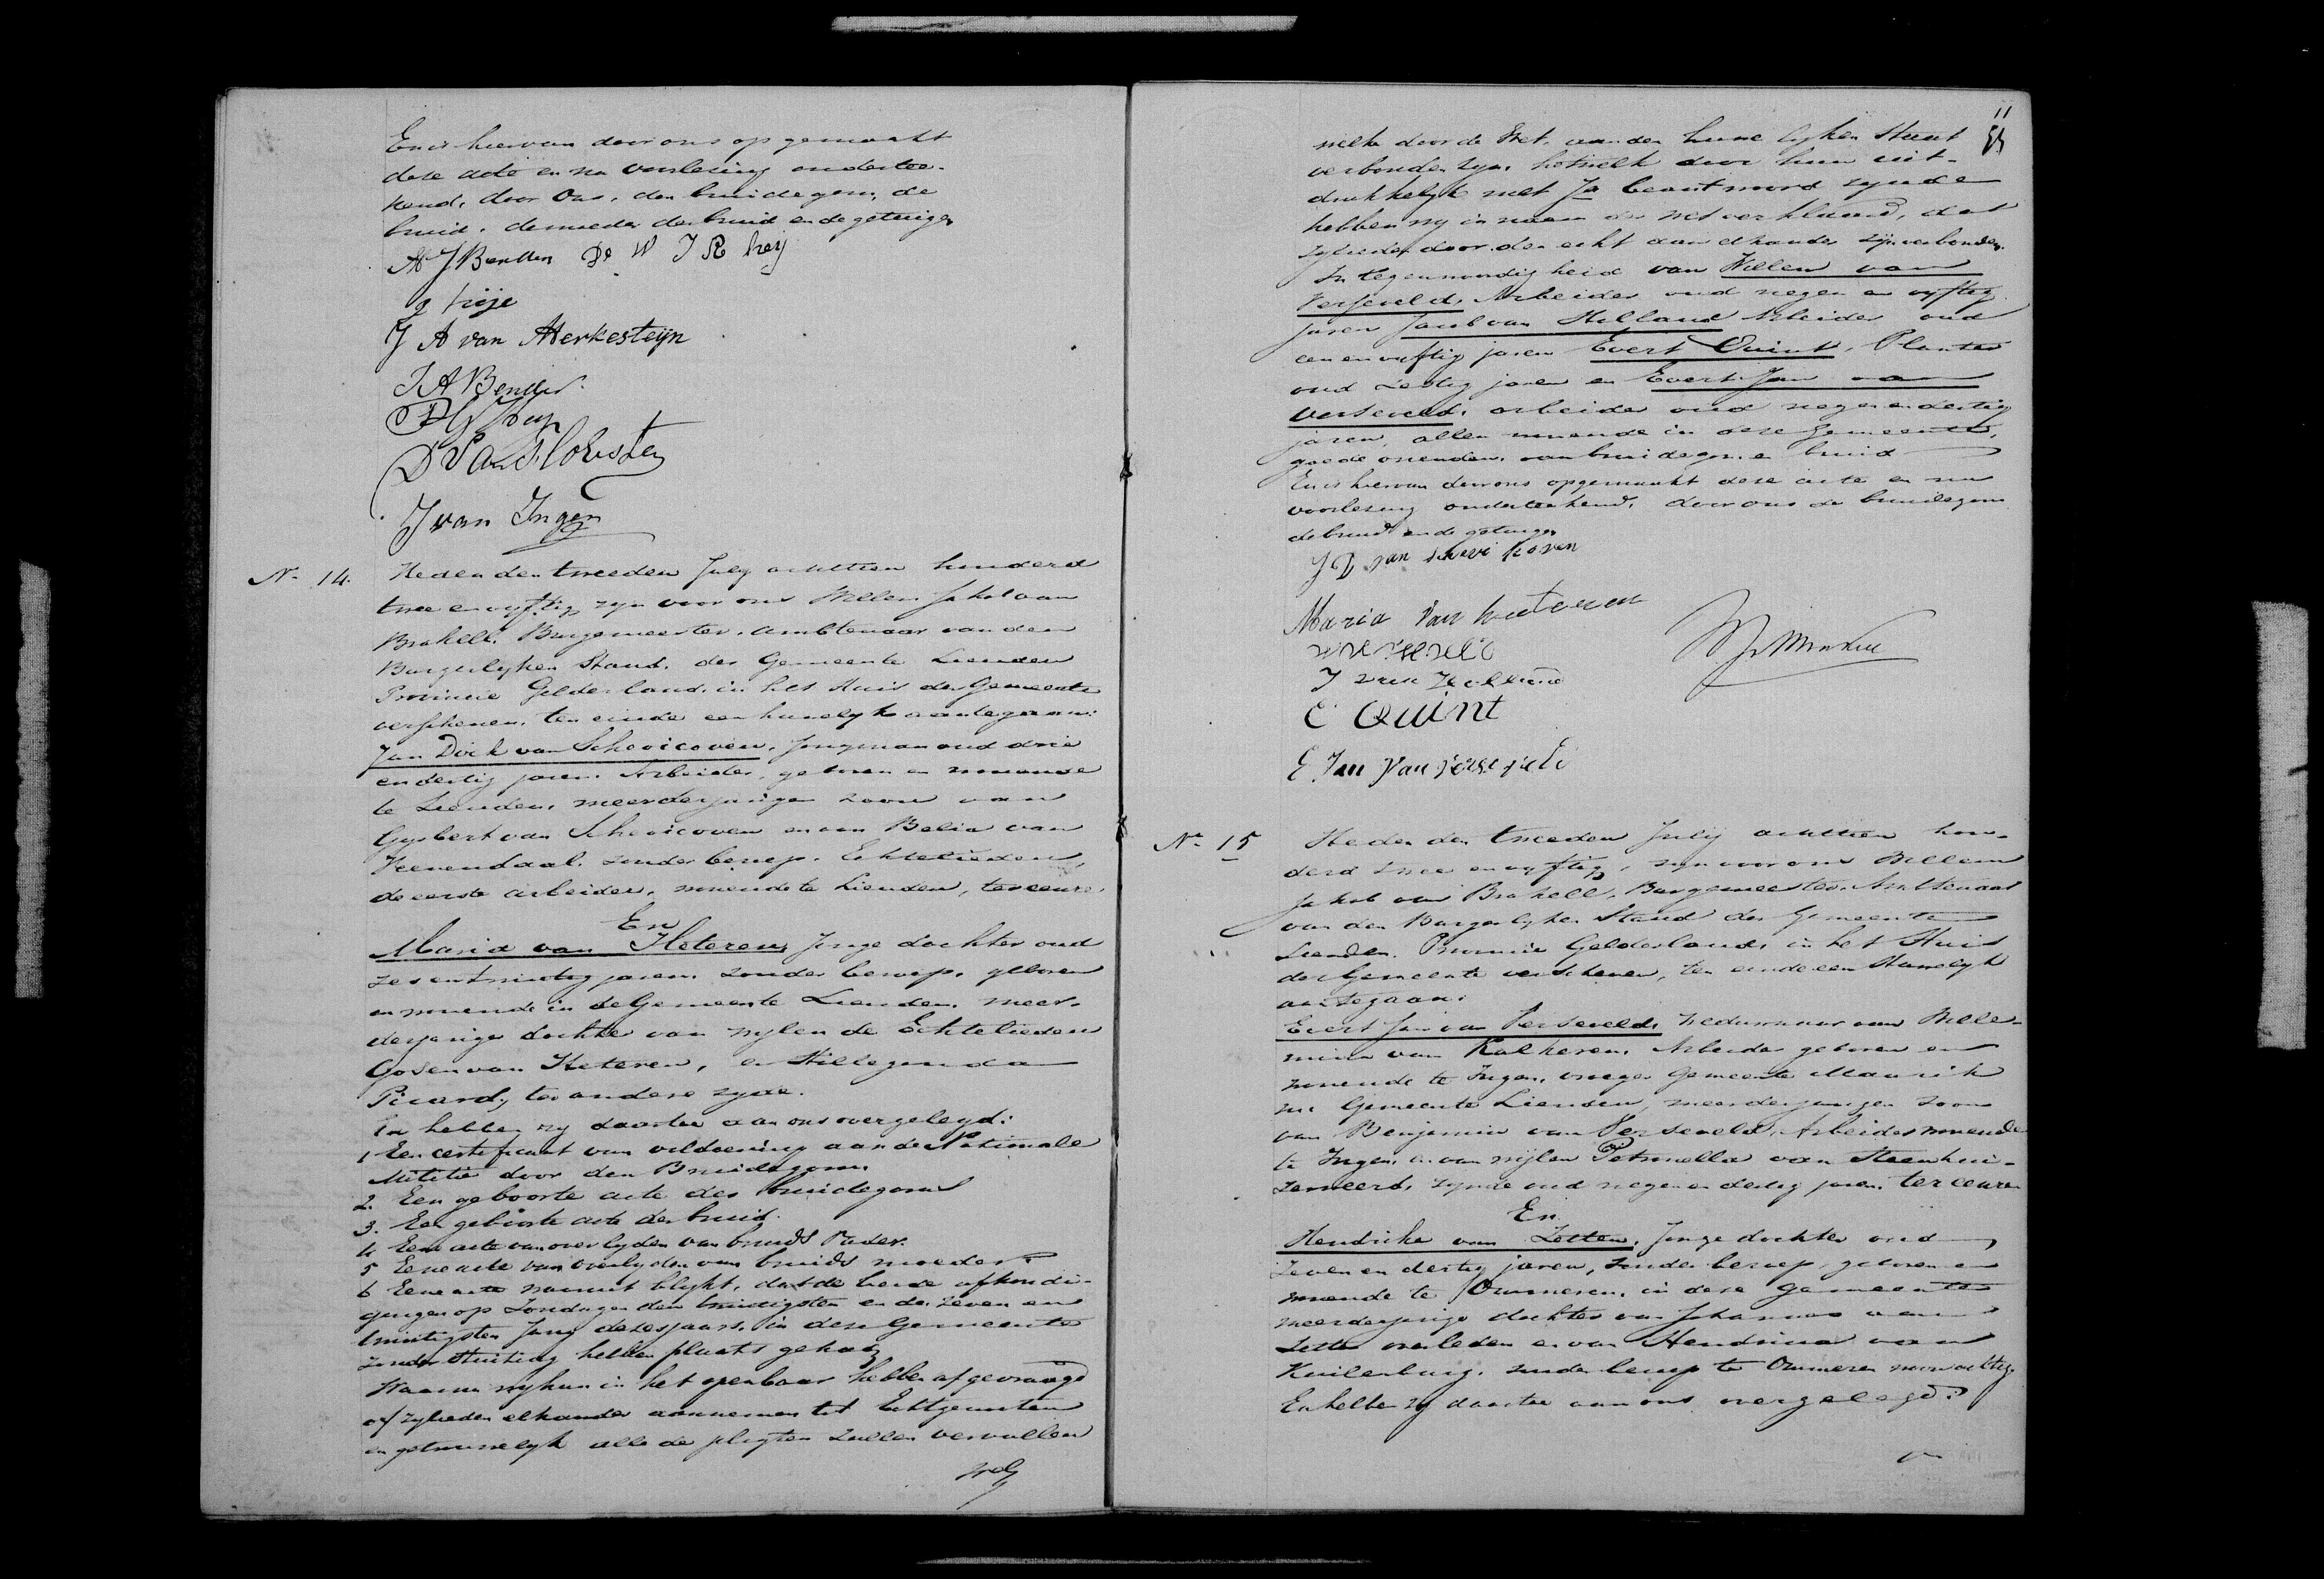 En is hiervan door ons opgemaakt
deze acte en na voorlezing ondertee-
kend, door Ons, den bruidegom, de
bruid, de moeder der bruid en de getuigen
J Bender De W J R heij
J A van Merkesteijn
J A Bender
J van Ingen
No. 14. Heden den tweeden July achttien honderd
twee en vyftig, zyn voor ons Willem Jakob van
Brakell, Burgemeester, ambtenaar van den
Burgerlyken Stand, der Gemeente Lienden
Provincie Gelderland, in het Huis der Gemeente
verschenen, ten einde een huwelyk aantegaan:
Jan Dirk van Schevicoven, jongman oud drie
en dertig jaren, Arbeider, geboren en wonende
te Lienden, meerderjarigen zoon van
Gysbert van Schevicoven en van Belia van
Veenendaal, zonder beroep, Echtelieden,
de eerste arbeider, wonende te Lienden, ter eenre
En
Maria van Heteren, Jonge dochter oud
zes en twintig jaren, zonder beroep, geboren
en wonende in de Gemeente Lienden, meer-
derjarige dochter van wylen de Echtelieden
Gosen van Heteren, en Hillegonda
Picard, ter andere zyde.
En hebben zy daartoe aan ons overgelegd:
1 Een certificaat van voldoening aan de Nationale
Militie door den Bruidegom
2. Een geboorte acte des bruidegoms
3. Een geboorte acte der bruid.
4 Eene acte van overlyden van bruids Vader.
5 Eene acte van overlyden van bruids moeder.
6 Eene acte waaruit blykt, dat de beide afkondi-
gingen op Zondagen den twintigsten en den zeven en
twintigsten Juny dezes jaars, in deze Gemeente
zonder stuiting hebben plaats gehad
Waarna wy hun in het openbaar hebben afgevraagd
of zylieden elkander aannemen tot Echtgenooten
en getrouwelyk alle de pligten zullen vervullen
11
welke door de Wet, aan den huwelyken Staat
verbonden zyn, hetwelk door hun uit-
drukkelyk met Ja beantwoord zynde
hebben wy in naam der wet verklaard, dat
zylieden door den echt aan elkander zyn verbonden.
In tegenwoordigheid van Willem van
Verseveld, Arbeider oud negen en vyftig
jaren Jacob van Holland Arbeider oud
een en vyftig jaren Evert Quint, Planter
oud zestig jaren en Evert Jan van
Verseveld, arbeider oud negen en dertig
jaren, allen wonende in deze Gemeente,
goede vrienden, van bruidegom en bruid
En is hiervan door ons opgemaakt deze acte en na
voorlezing onderteekend, door ons de bruidegom
de bruid en de getuigen
J D van Schevi koven
Maria Van heteren
J van Holland
E Quint
E Jan Van verseveld
No. 15 Heden den tweeden July achttien hon-
derd twee en vyftig, zyn voor ons Willem
Jakob van Brakell, Burgemeester, Ambtenaar
van den Burgerlyken Stand der Gemeente
Lienden, Provincie Gelderland, in het Huis
der Gemeente verschenen, ten einde een Huwelyk
aantegaan:
Evert Jan van Verseveld, Weduwnaar van Wille-
mina van Kalkeren, Arbeider geboren en
wonende te Ingen, vroeger Gemeente Maurik
nu Gemeente Lienden, meerderjarigen zoon
van Benjamin van Verseveld, Arbeider wonende
te Ingen, en van wijlen Petronella van Steenhui-
zenweerd, zynde oud negen en dertig jaren, ter eenre
En
Hendrika van Zetten, Jonge dochter oud
zeven en dertig jaren, zonder beroep, geboren en
wonende te Ommeren, in deze gemeente
meerderjarige dochter van Johannes van
Zetten overleden en van Hendrina van
Kuilenburg, zonder beroep te Ommeren woonachtig.
En hebben zy daartoe aan ons overgelegd: